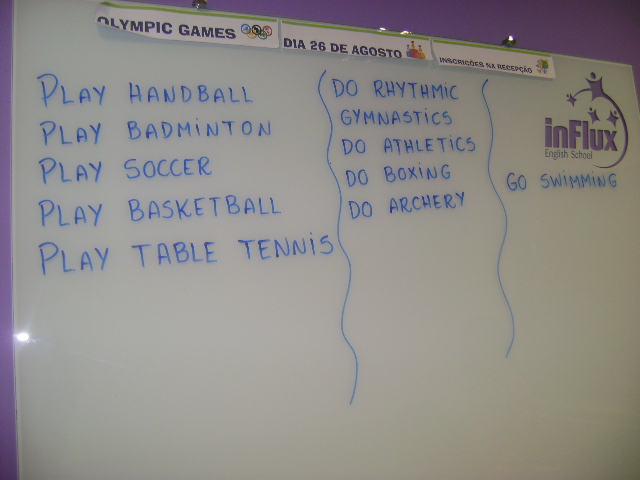 OLYMPIC GAMES
DIA 26 DE AGOSTO
INSCRIÇÕES NA RECEPÇÃO
PLAY HANDBALL
PLAY BADMINTON
PLAY SOCCER
PLAY BASKETBALL
PLAY TABLE TENNIS
DO RHYTHMIC
GYMNASTICS
DO ATHLETICS
DO BOXING
DO ARCHERY
inFlux
English School
GO SWIMMING